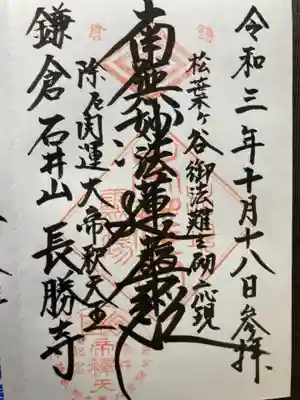 令和三年十月十八日参拝
松葉ヶ谷御法難之砌応現
南無妙法蓮華経
除厄開運大帝釈天王
鎌倉石井山長勝寺
鎌
倉
帝釈天